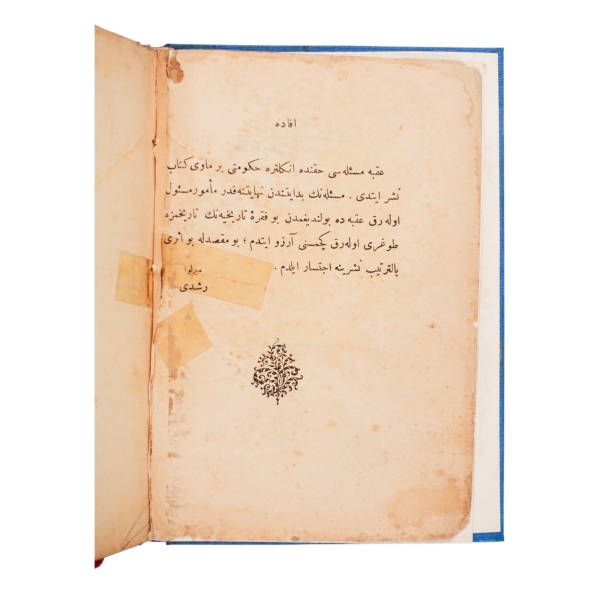 افاده
عقبه مسئله‌سی حقنده انكلتره حكومتی بر ماوی كتاب
نشر ایتدی . مسئله‌نك بدایتندن نهایتنه قدر مأمور مسئول
اوله‌رق عقبه‌ده بولندیغمدن بو فقرهٔ تاریخیه‌نك تاریخمزه
طوغری اوله‌رق كچمسنی آرزو ایتدم ؛ بو مقصدله بو اثری
بالترتیب نشرینه اجتسار ایلدم .
میرلوا
رشدی